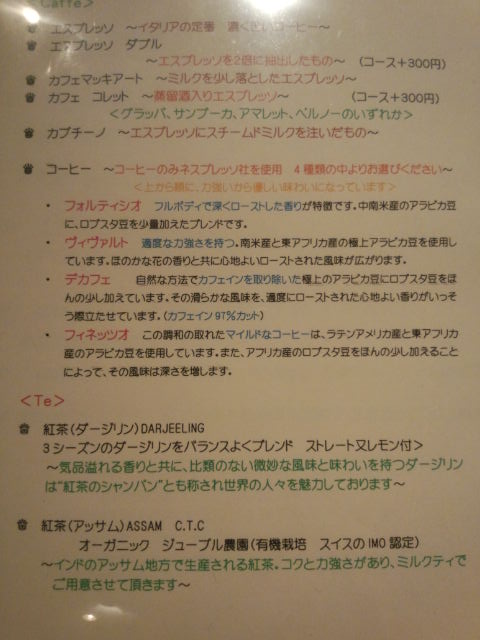 <Caffe>
エスプレッソ ～イタリアの定番 濃くぎいコーヒー～
エスプレッソ ダブル
～エスプレッソを2倍に抽出したもの～ (コース+300円)
カフェマッキアート ～ミルクを少し落としたエスプレッソ～
カフェ コレット ～蒸留酒入りエスプレッソ～ (コース+300円)
<グラッパ、サンブーカ、アマレット、ペルノーのいずれか>
カプチーノ ～エスプレッソにスチームドミルクを注いだもの～
コーヒー ～コーヒーのみネスプレッソ社を使用 4種類の中よりお選びください～
<上から順に、力強いから優しい味わいになっています>
・ フォルティシオ フルボディで深くローストした香りが特徴です。中南米産のアラビカ豆
に、ロブスタ豆を少量加えたブレンドです。
・ ヴィヴァルト 適度な力強さを持つ。南米産と東アフリカ産の極上アラビカ豆を使用し
ています。ほのかな花の香りと共に心地よいローストされた風味が広がります。
・ デカフェ 自然な方法でカフェインを取り除いた極上のアラビカ豆にロブスタ豆をほ
んの少し加えています。その滑らかな風味を、適度にローストされた心地よい香りがいっそ
う際立たせています。(カフェイン97%カット)
・ フィネッツオ この調和の取れたマイルドなコーヒーは、ラテンアメリカ産と東アフリカ
産のアラビカ豆を使用しています。また、アフリカ産のロブスタ豆をほんの少し加えること
によって、その風味は深さを増します。
<Te>
紅茶(ダージリン)DARJEELING
3シーズンのダージリンをバランスよくブレンド ストレート又レモン付>
～気品溢れる香りと共に、比類のない微妙な風味と味わいを持つダージリン
は"紅茶のシャンパン"とも称され世界の人々を魅力しております～
紅茶(アッサム)ASSAM C.T.C
オーガニック ジュープル農園(有機栽培 スイスのIMO認定)
～インドのアッサム地方で生産される紅茶。コクと力強さがあり、ミルクティで
ご用意させて頂きます～